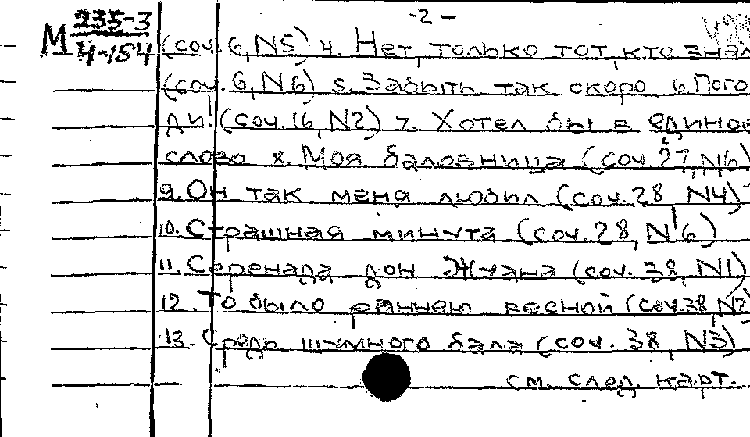 -2-
М 235-3
4-154
(соч. 6, N5) 4. Нет, только тот, кто знал
(соч. 6, N6) 5. Забыть так скоро 6. Пого
ди! (соч. 16, N2) 7. Хотел бы в единое
слово 8. Моя баловница (соч. 27, N6)
9. Он так меня любил (соч. 28 N4)
10. Страшная минута (соч. 28, N6)
11. Серенада дон Жуана (соч. 38, N1)
12. То было раннею весной (соч. 38, N2)
13. Средь шумного бала (соч. 38, N3)
см. след. карт.